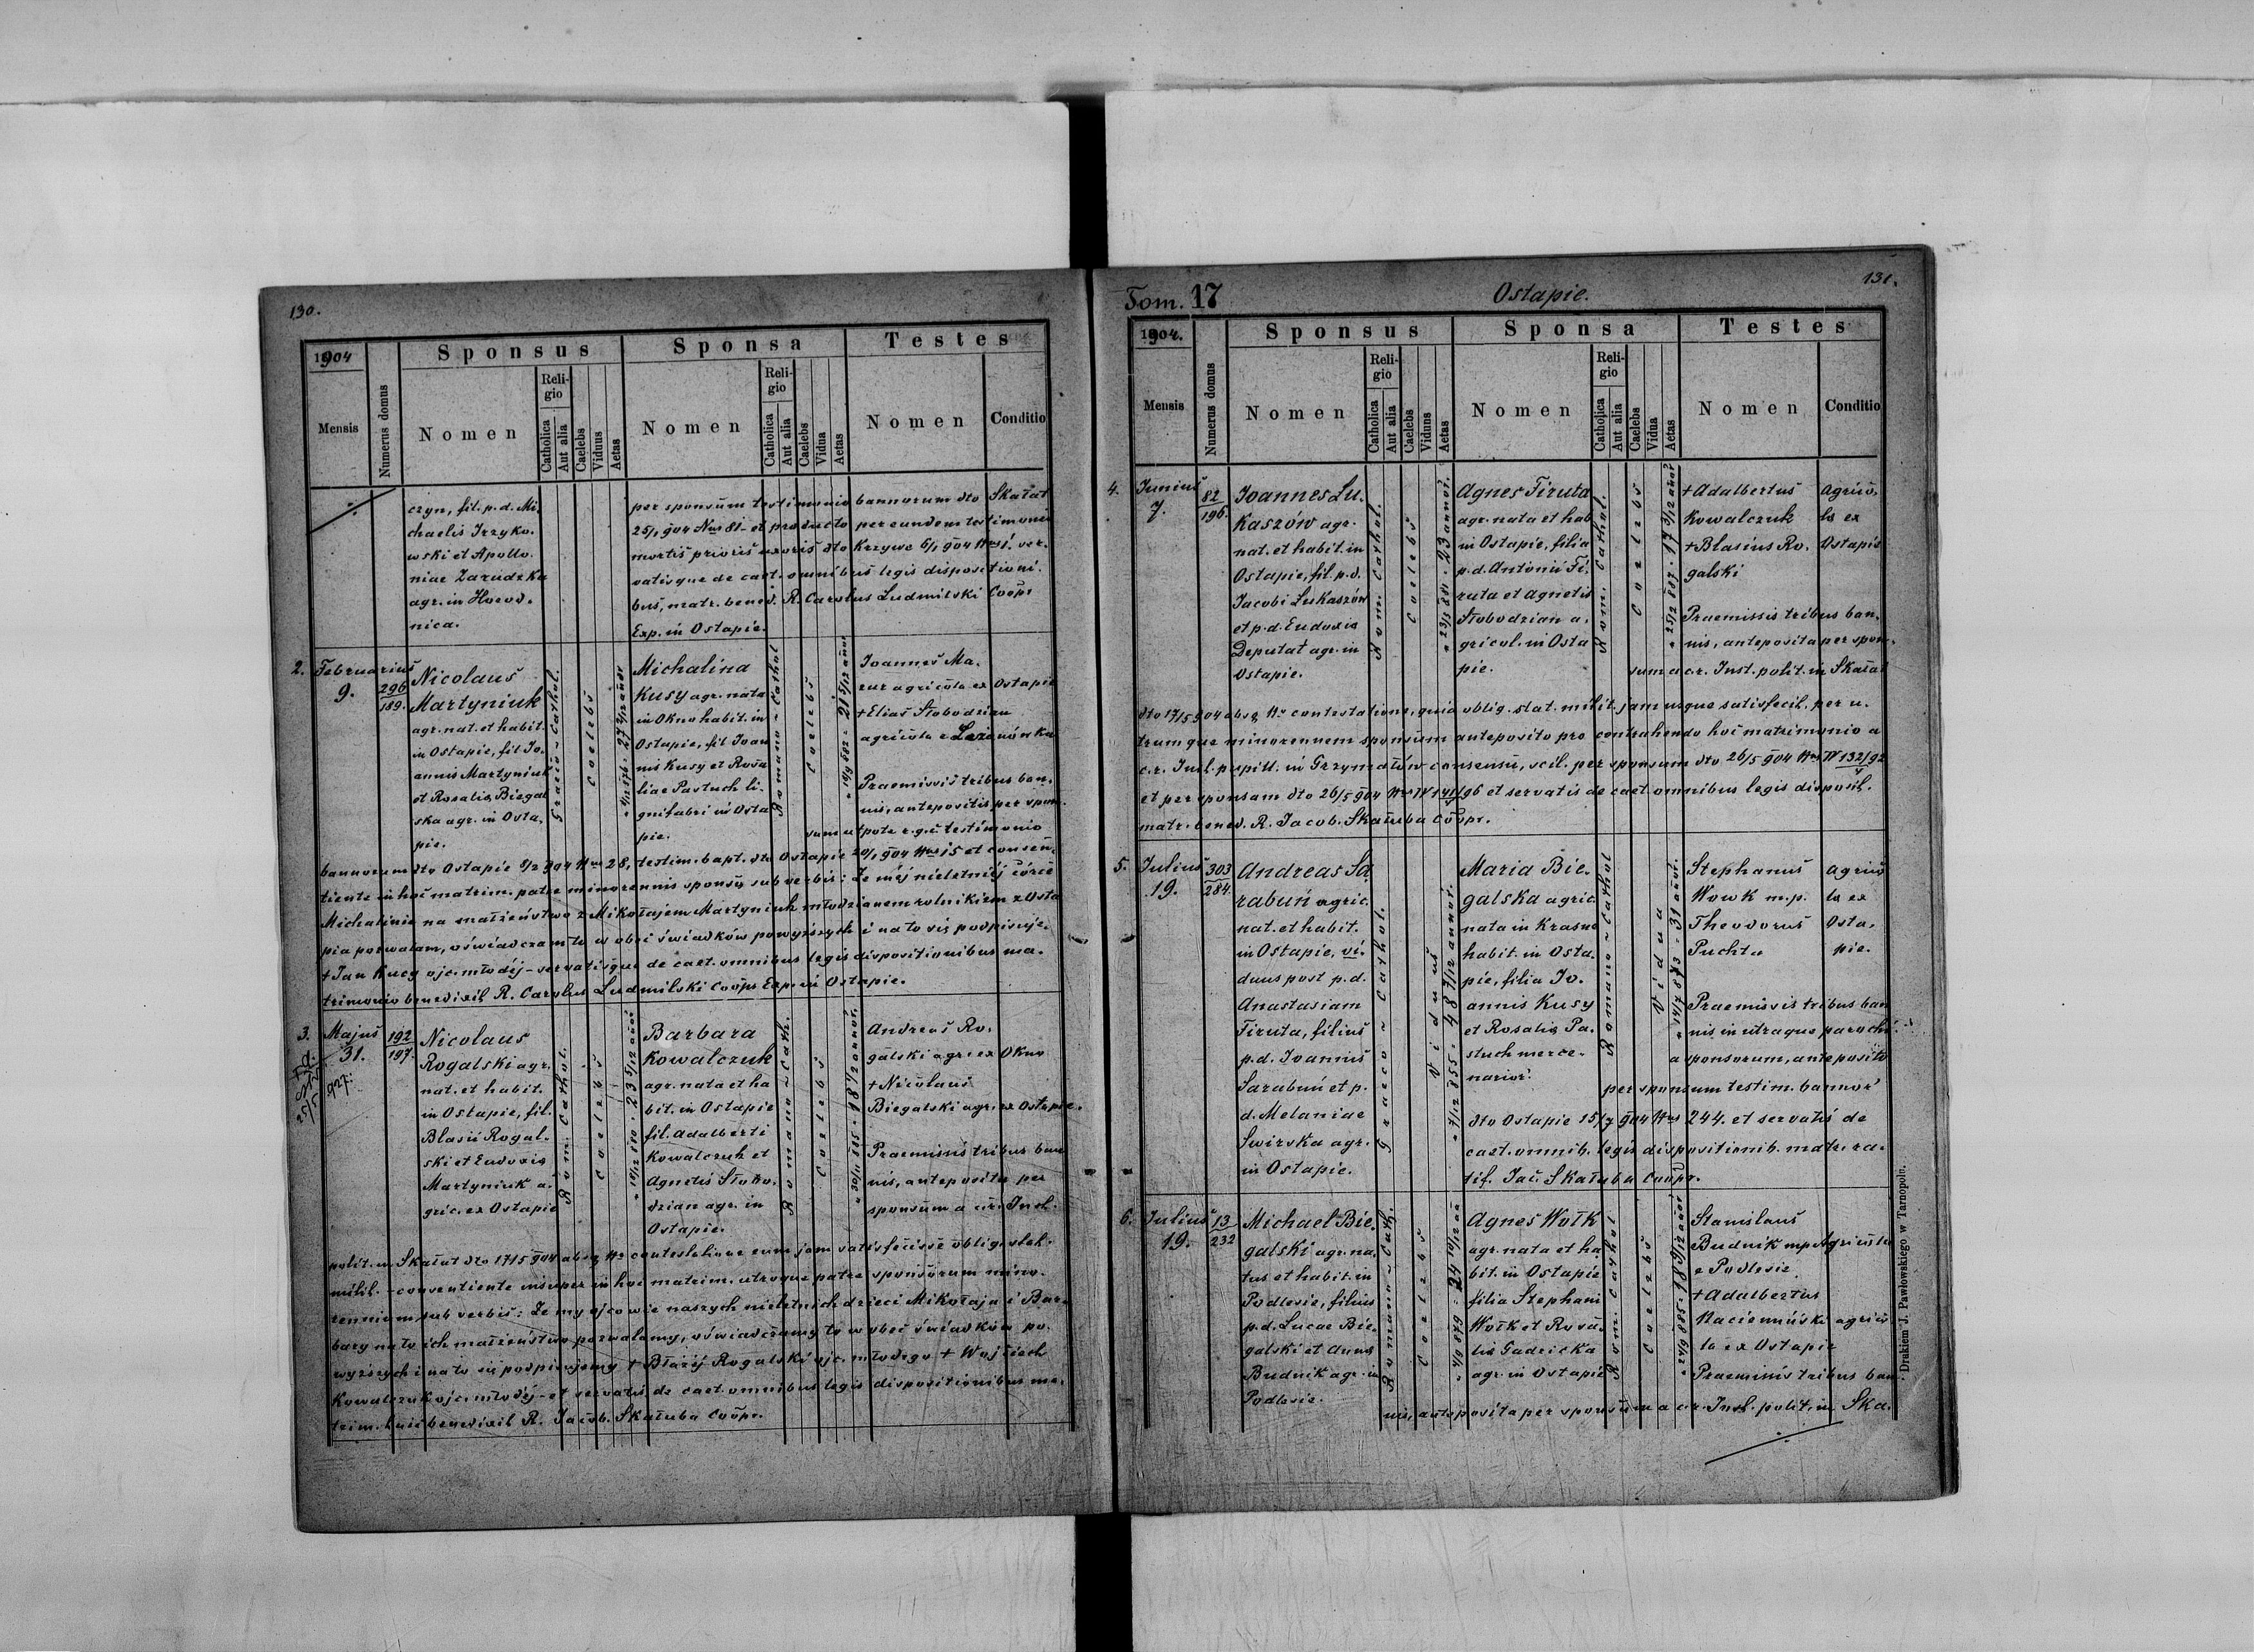 130.
1904
Mensis
Numerus domus
Sponsus
Nomen
Religio
Catholica
Aut alia
Caelebs
Viduus
Aetas
Sponsa
Nomen
Religio
Catholica
Aut alia
Caelebs
Vidua
Aetas
Testes
Nomen
Conditio
czyn, fil. p. d. Mi-
chaelis Irzyko-
wski et Apollo-
niae Zarudzka
agr. in Horod-
nica.
per sponsum testimonio bannorum dto Skałat
25/1 904 Nus 81- et producto per eundem testimonio
mortis prioris uxoris dto Krzywe 6/1 904 Nus 1. ser-
vatisque de caet. omnibus legis dispositioni-
bus, matr. bened. R. Carolus Ludmilski Coops
Exp. in Ostapie.
2. Februarius
9.
296
189.
Nicolaus
Martyniuk
agr. nat. et habit.
in Ostapie, fil. Jo-
annis Martyniuk
et Rosalia Biegal-
ska agr. in Osta-
pie.
Graeco - Cathol.
Coelebs
Michalina
Kusy agr. nata
in Okno habit. in
Ostapie, fil. Joan-
nis Kusy et Rosa-
liae Pastuch li-
gnifabri in Osta-
pie.
Romano - Cathol
Coelebs
Joannes Ma-
zur agricola ex Ostapie
+ Elias Słobodzian
agricola e Lezanówka
Praemissis tribus ban-
nis, antepositis per spon-
sum utpote r. g. c. testimonio
bannorum dto Ostapie 8/2 904 Nus 28, testim. bapt. dto Ostapie 20/1 904 Nus 15 et consen-
tiente in hoc matrim. patre minorennis sponsę sub verbis: Że méj nieletniéj córce
Michalinie na małżeństwo z Mikołajem Martyniuk młodzianem rolnikiem z Osta-
pia pozwalam, oświadczam to w obec świadków powyższych i na to się podpisuje-
+ Jan Kucy ojc. młodéj - servatisque de caet. omnibus legis dispositionibus ma-
trimonio benedixit R. Carolus Ludmilski Coops Exp. in Ostapie.
3. Majus
31.
192
197.
Nicolaus
Rogalski agr.
nat. et habit.
in Ostapie, fil.
Blasii Rogal-
ski et Eudoxia
Martyniuk a-
gric. ex Ostapie
Rom. Cathol.
Coelebs
Barbara
Kowalczuk
agr. nata et ha-
bit. in Ostapie
fil. Adalberti
Kowalczuk et
Agnetis Słobo-
dzian agr. in
Ostapie.
Romano - Cath.
Coelebs
Andreas Ro-
galski agr. ex Okno
+ Nicolaus
Biegalski agr. ex Ostapie.
Praemissis tribus ban-
nis, anteposita per
sponsum a c.r. Inst.
polit. in Skałat dto 17/5 904 absq Nro contestatione eum jam satisfecisse oblig. stat.
milit. - consentiente insuper in hoc matrim. utroque patre sponsorum mino-
rennium sub verbis: Że my ojcowie naszych nieletnich dzieci Mikołaja i Bar-
bary na to ich małżeństwo pozwalamy, oświadczamy to w obec świadków po-
wyższych i na to się podpisujemy + Błażéj Rogalski ojc. młodego + Wojciech
Kowalczuk ojc. młodéj - et servatis de caet. omnibus legis dispositionibus ma-
trim. huic benedixit R. Jacob. Skałuba Coopr.
Tom. 17
Ostapie.
131.
1904.
Mensis
Numerus domus
Sponsus
Nomen
Religio
Catholica
Aut alia
Caelebs
Viduus
Aetas
Sponsa
Nomen
Religio
Catholica
Aut alia
Caelebs
Vidua
Aetas
Testes
Nomen
Conditio
4. Junius
7.
82
196.
Joannes Lu-
kaszów agr.
nat. et habit. in
Ostapie, fil. p. d.
Jacobi Lukaszów
et p. d. Eudoxia
Deputat agr. in
Ostapie.
Rom. Cathol.
Coelebs
23/5 881 - 23 annor.
Agnes Firuta
agr. nata et hab.
in Ostapie, filia
p. d. Antonii Fi-
ruta et Agnetis
Słobodzian a-
gricol. in Osta-
pie.
Rom. Cathol.
Coelebs
+ Adalbertus
Kowalczuk
+ Blasius Ro-
galski
agrico-
la ex
Ostapie
Praemissis tribus ban-
nis, anteposita per spon-
sum a c.r. Inst. polit. in Skałat
dto 17/5 904 absq Nro contestatione, quia oblig. stat. milit. jam usque satisfecit, per u-
trumque minorennem sponsum anteposito pro contrahendo hoc matrimonio a
c.r. Inst. pupill. in Grzymałów consensu, scil. per sponsum dto 26/5 904 Nus IV 132/92
et per sponsam dto 26/5 904 Nus IV 141/96 et servatis de caet. omnibus legis disposit.
matr. bened. R. Jacob. Skałuba Coopr.
5. Julius
19.
303
284.
Andreas Sa-
rabun agric.
nat. et habit.
in Ostapie, vi-
duus post p. d.
Anastasiam
Firuta, filius
p. d. Joannis
Sarabun et p.
d. Melaniae
Swirska agr.
in Ostapie.
Graeco - Cathol.
Viduus
Maria Bie-
galska agric.
nata in Krasne
habit. in Osta-
pie, filia Jo-
annis Kusy
et Rosalia Pa-
stuch merce-
narior.
Romano - Cathol
Vidua
14/7 873 - 31 annor.
Stephanus
Wowk m.p.
Theodorus
Puchta
agrico-
la ex
Osta-
pie.
Praemissis tribus ban-
nis in utraque parochi-
a sponsorum, anteposito
per sponsum testim. bannor.
dto Ostapie 15/7 904 Nus 244. et servatis de
caet. omnib. legis dispositionib. matr. ra-
tif. Jac. Skałuba Coopr.
6. Julius
19.
13
232
Michael Bie-
galski agr. na-
tus et habit. in
Podlesie, filius
p. d. Lucae Bie-
galski et Anna
Budnik agr. in
Podlesie.
Romano - Cath.
Coelebs
Agnes Wołk
agr. nata et ha-
bit. in Ostapie
filia Stephani
Wołk et Rosa-
lia Gadzicka
agr. in Ostapie
Rom. Cathol
Coelebs
Stanislaus
Budnik mp Agricola
e Podlesie
+ Adalbertus
agrico-
la ex Ostapie
Praemissis tribus ban-
nis, anteposita per sponsum a c.r. Inst. polit. in Ska-
Drukiem J. Pawłowskiego w Tarnopolu.